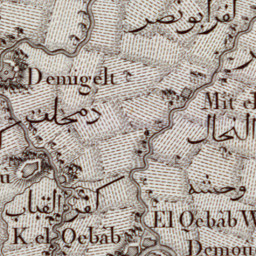 كفر ابو نصر
Demigelt
دمجلت
Mit el
النحال
وحشه
كفر القباب
El Qebâb W
K. el Qebâb
Demou